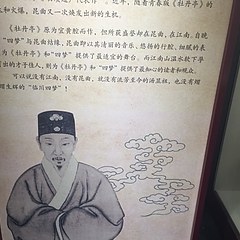 和火爆，昆曲又一次焕发出新的生机。
《牡丹亭》原为宜黄腔而作，但州筱当登却在昆曲，在江南。自晚
"四梦"与昆曲结缘，昆曲即以其清丽的音乐、悠扬的行腔、细腻的表
为《牡丹亭》和"四梦"提供了最适宜的舞台。而江南山温水软下孕
出的才子佳人，则为《牡丹亭》和"四梦"提供了最知心的读者和观众。
可以说没有江南，没有昆曲，就没有流芳至今的汤显祖，也没有耀
耀生辉的"临川四梦"！